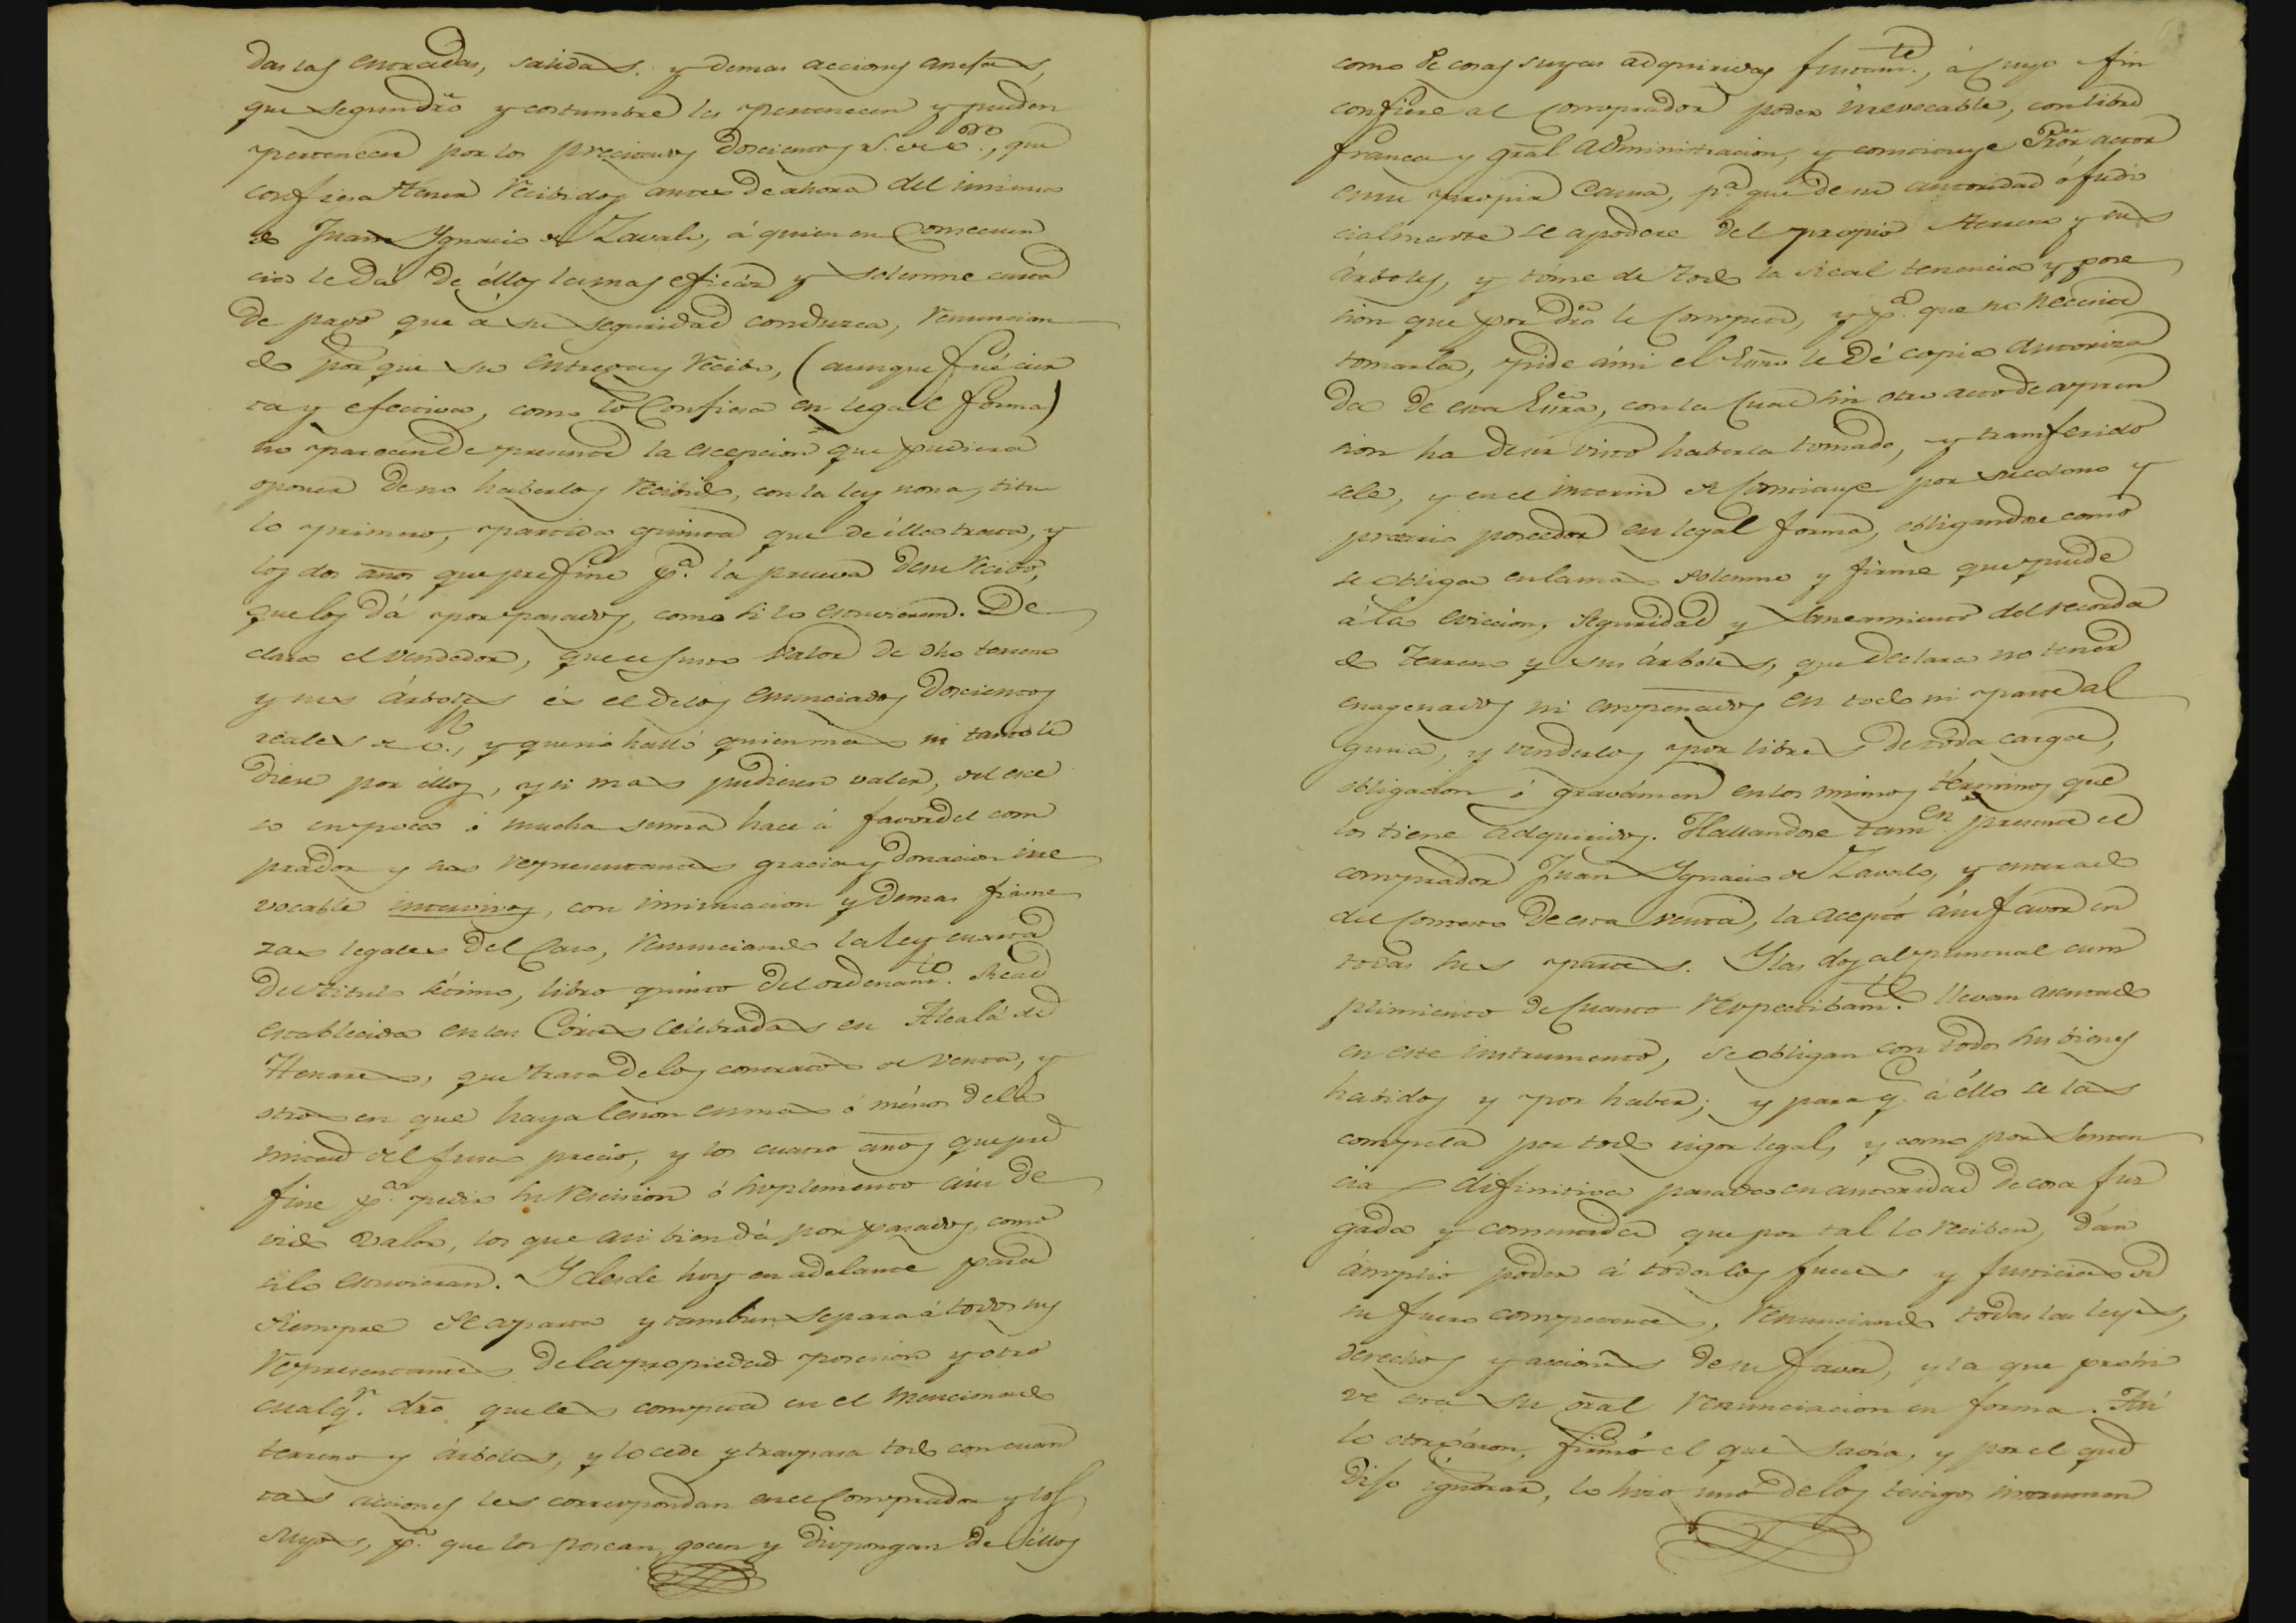 das las entradas, salidas, y demas acciones anexas,
que segun dro y costumbre les pertenecen y pueden
pertenecer por los precitados doscientos r.s de v.on, que
confiesa tener recibidos antes de ahora del mismo
Juan Ygnacio de Zavala, á quien en consecuen
cia le dá de éllos la mas eficáz y solemne carta
de pago que á su seguridad conduzca, renuncian
do por que su entrega y recibo, (aunque fué cier
ta y efectiva, como lo confiesa en legal forma)
no parecen de presente la escepcion que pudiera
oponer de no haberlos recibido, con la ley nona, titu
lo primero, partida quinta que de éllo trata, y
los dos años que prefine p.a la prueva de su recibo,
que los dá por pasados, como si lo estuvieran. De
clara el vendedor, que el justo valor de dho terreno
y sus árboles és el de los enunciados doscientos
reales de v.n, y que no halló quien mas ni tanto le
diese por éllos, y si mas pudiesen valer, del esce
so en poca ó mucha suma hace á favor del com
prador y sus representantes gracia y donacion irre
vocable intervivos, con insinuacion y demas firme
zas legales del caso, renunciando la ley cuarta
del titulo sétimo, libro quinto del ordenam.to Real
establecida en las Córtes celebradas en Alcalá de
Henares, que trata de los contratos de venta, y
otros en que haya lesion en mas ó ménos de la
mitad del justo precio, y los cuatro años que pre
fine p.a pedir su rescision ó suplemento á su de
vido valor, los que asi bien dá por pasados, como
si lo estuvieran. Y desde hoy en adelante para
siempre se aparta y tambien separa á todos sus
representantes de la propiedad posesion y otro
cualq.r dro que les competa en el mencionado
terreno y árboles, y lo cede y traspasa todo con cuan
tas acciones les correspondan en el comprador y los
suyos, p.a que los posean, gocen y dispongan de éllos
como de cosas suyas adquiridas justam.te, á cuyo fin
confiere al comprador poder irrevocable, con libre
franca y gral administracion, y constituye Pror actor
en su propia causa, p.a que de su autoridad ó judi
cialmente se apodere del propio terreno y sus
árboles, y tóme de todo la Real tenencia y pose
sion que por dro le compete, y p.a que no necesite
tomarla, pide á mi el Esno le dé copia autoriza
da de esta Esra, con la cual sin otro acto de apren
sion ha de ser visto haberla tomado, y transferido
sele, y en el interin se constituye por su colono y
precario poseedor en legal forma, obligandose como
se obliga en la mas solemne y firme que puede
á la eviccion, seguridad y saneamiento del recorda
do terreno y sus árboles, que declara no tener
enagenados ni empeñados en todo ni parte al
guna, y venderlos por libres de toda carga,
obligacion ó gravámen en los mismos términos que
los tiene adquiridos. Hallandose tam.en presente el
comprador Juan Ygnacio de Zavala, y enterado
del contesto de esta venta, la aceptó á su favor en
todas sus partes. Y las dos al puntual cum
plimiento de cuanto respectibam.te llevan asentado
en este instrumento, se obligan con todos sus bienes
habidos y por haber; y para q.e á éllo se las
compela por todo rigor legal, y como por senten
cia difinitiva pasada en autoridad de cosa juz
gada y consentida que por tal lo reciben, dán
ámplio poder á todos los jueces y justicias de
su fuero competentes, renunciando todas las leyes,
derechos y acciones de su favor, y la que prohi
ve esta su gral renunciacion en forma. Así
lo otorgáron, firmó el que savía, y por el que
dijo ignorar, lo hizo uno de los testigos instrumen